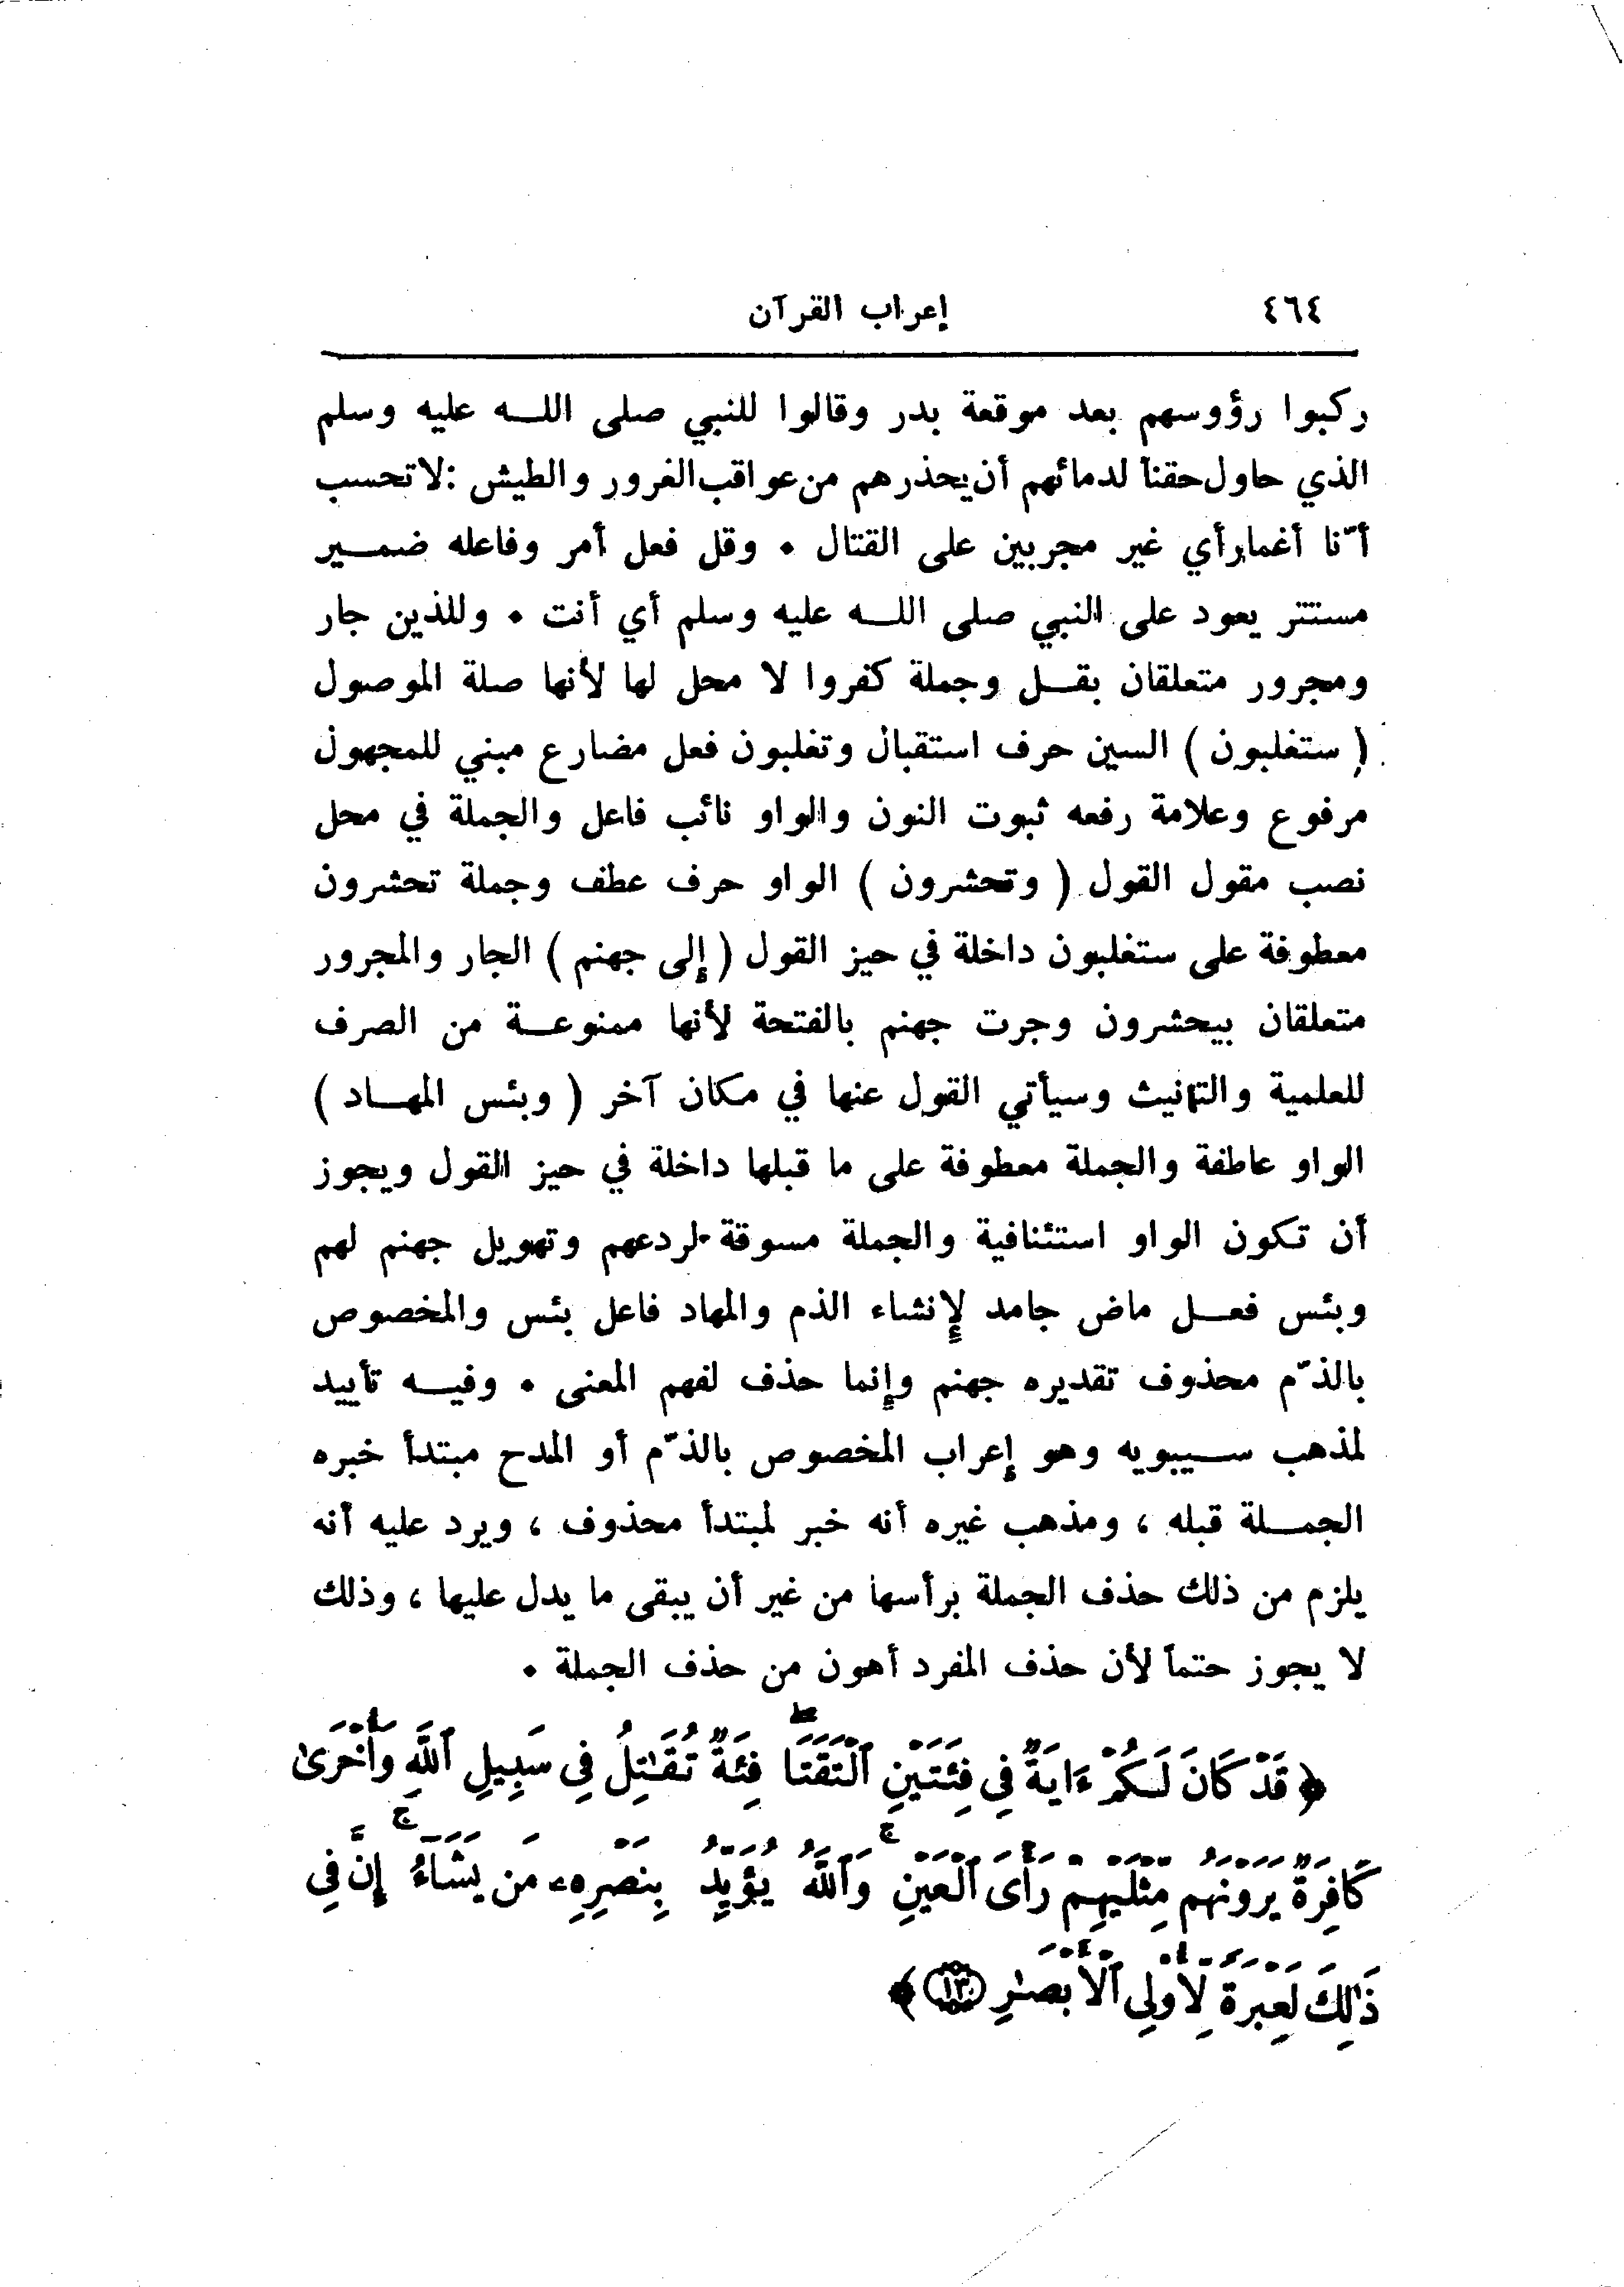 ٤٦٤ إعراب القرآن
ركبوا رؤوسهم بعد موقعة بدر وقالوا للنبي صلى اللـه عليه وسلم
الذي حاول حقناً لدمائهم أن يحذرهم من عواقب الغرور والطيش : لا تحسب
أنّا أغمار أي غير مجربين على القتال . وقل فعل أمر وفاعله ضمـير
مستتر يعود على النبي صلى اللـه عليه وسلم أي أنت . وللذين جار
ومجرور متعلقان بقـل وجملة كفروا لا محل لها لأنها صلة الموصول
( ستغلبون ) السين حرف استقبال وتغلبون فعل مضارع مبني للمجهول
مرفوع وعلامة رفعه ثبوت النون والواو نائب فاعل والجملة في محل
نصب مقول القول ( وتحشرون ) الواو حرف عطف وجملة تحشرون
معطوفة على ستغلبون داخلة في حيز القول ( إلى جهنم ) الجار والمجرور
متعلقان بيحشرون وجرت جهنم بالفتحة لأنها ممنوعـة من الصرف
للعلمية والتانيث وسيأتي القول عنها في مكان آخر ( وبئس المهـاد )
الواو عاطفة والجملة معطوفة على ما قبلها داخلة في حيز القول ويجوز
أن تكون الواو استئنافية والجملة مسوقة لردعهم وتهويل جهنم لهم
وبئس فعـل ماض جامد لإنشاء الذم والمهاد فاعل بئس والمخصوص
بالذّم محذوف تقديره جهنم وإنما حذف لفهم المعنى . وفيـه تأييد
لمذهب سـيبويه وهو إعراب المخصوص بالذّم أو المدح مبتدأ خبره
الجمـلة قبله ، ومذهب غيره أنه خبر لمبتدأ محذوف ، ويرد عليه أنه
يلزم من ذلك حذف الجملة برأسها من غير أن يبقى ما يدل عليها ، وذلك
لا يجوز حتماً لأن حذف المفرد أهون من حذف الجملة .
﴿ قَدْ كَانَ لَكُمْ ءَايَةٌ فِي فِئَتَيْنِ ٱلْتَقَتَا ۖ فِئَةٌ تُقَٰتِلُ فِي سَبِيلِ ٱللَّهِ وَأُخْرَىٰ
كَافِرَةٌ يَرَوْنَهُم مِّثْلَيْهِمْ رَأْىَ ٱلْعَيْنِ ۚ وَٱللَّهُ يُؤَيِّدُ بِنَصْرِهِۦ مَن يَشَآءُ ۚ إِنَّ فِي
ذَٰلِكَ لَعِبْرَةً لِّأُوْلِي ٱلْأَبْصَٰرِ ١٣ ﴾